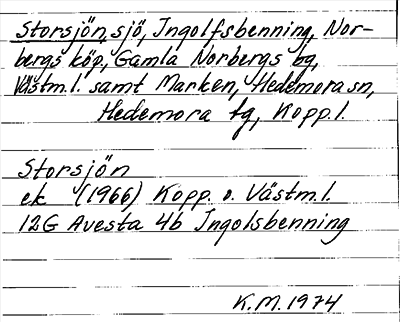 Storsjön, sjö, Ingolfsbenning, Nor-
bergs köp, Gamla Norbergs bg,
Västm.l. samt Marken, Hedemora sn,
Hedemora tg, Kopp.l.
Storsjön
ek (1966) Kopp. o. Västm.l.
12G Avesta 4b Ingolsbenning
K.M. 1974